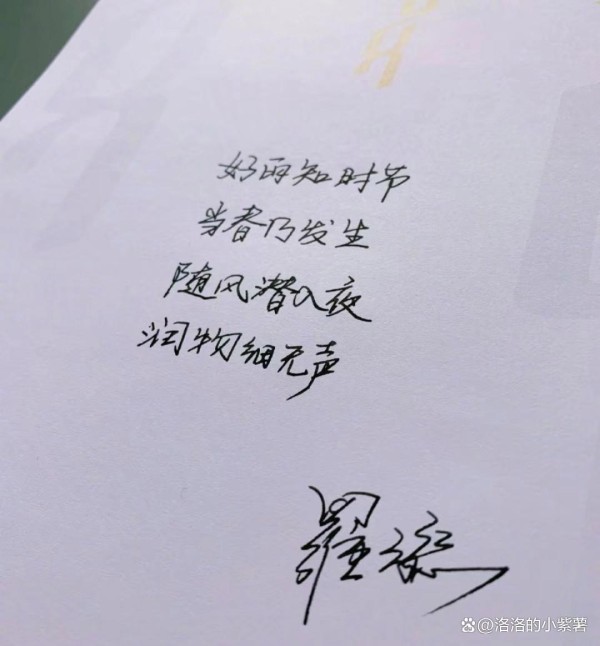 好雨知时节
当春乃发生
随风潜入夜
润物细无声
@洛洛的小紫薯